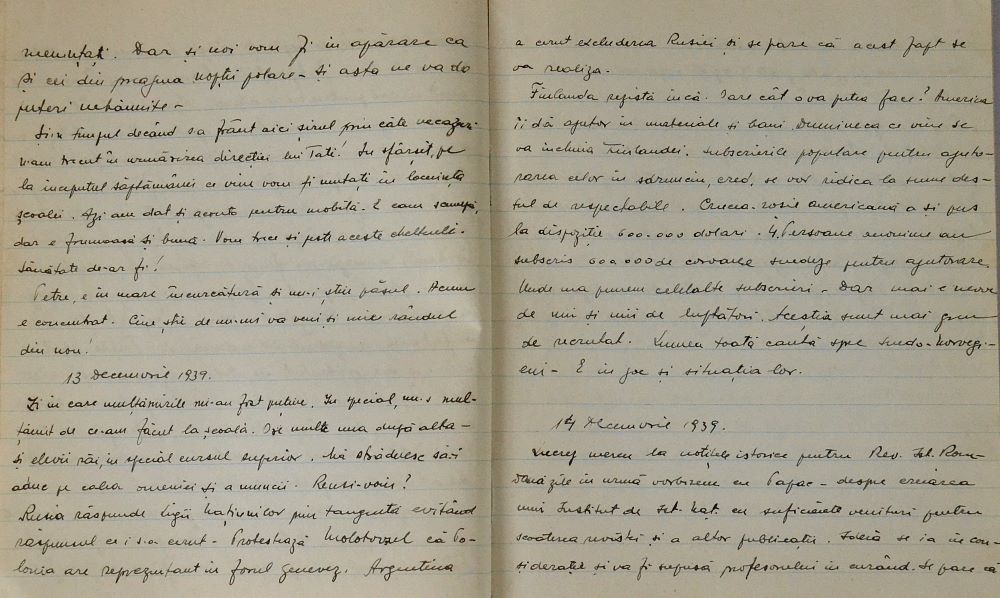 menințați. Dar și noi vom fi în apărare ca
și cei din preajma nopții polare - și asta ne va da
puteri nebănuite -
Și-n timpul decând s'a frânt aici șirul prin câte necazuri
n-am trecut în urmărirea direcției lui Tati! În sfârșit, pe
la începutul săptămânii ce vine vom fi mutați în locuința
școalei. Azi am dat și aconto pentru mobilă. E cam scumpă,
dar e frumoasă și bună. Vom trece și peste aceste cheltueli.
Sănătate de-ar fi!
Petre, e în mare încurcătură și nu-i știu păsul. Acum
e concentrat. Cine știe de nu-mi va veni și mie rândul
din nou!
13 Decemvrie 1939.
Zi în care mulțămirile mi-au fost puține. În special, nu-s mul-
țămit de ce-am făcut la școală. Ore multe una după alta -
și elevii răi, în special cursul superior. Mă străduesc să-i
aduc pe calea omeniei și a muncii. Reuși-voiu?
Rusia răspunde Ligii Națiunilor prin tangentă evitând
răspunsul ce i s-a cerut - Protestează Molotovul că Po-
lonia are reprezentant în forul genevez. Argentina
a cerut excluderea Rusiei și se pare că acest fapt se
va realiza.
Finlanda rezistă încă. Oare cât o va putea face? America
îi dă ajutor în materiale și bani. Dumineca ce vine se
va închina Finlandei. Subscrierile populare pentru ajuto-
rarea celor în sărmăn, cred, se vor ridica la sume des-
tul de respectabile. Crucea-roșie americană a și pus
la dispoziție 600.000 dolari. 4 Persoane anonime au
subscris 600.000 de coroane suedeze pentru ajutorare.
Unde mai punem celelalte subscrieri - Dar mai e nevoe
de mii și mii de luptători. Aceștia sunt mai greu
de recrutat. Lumea toată caută spre Suedo-Norvegi-
eni - E în joc și situația lor.
14 Decemvrie 1939.
Lucrez mereu la notițele istorice pentru Rev. Ist. Rom-
Două zile în urmă vorbirem cu Papac - despre creiarea
unui Institut de Ist. Naț. cu suficiente venituri pentru
scoaterea revistei și a altor publicații. Ideia se ia în con-
siderație și va fi supusă profesorului în curând. Se pare că